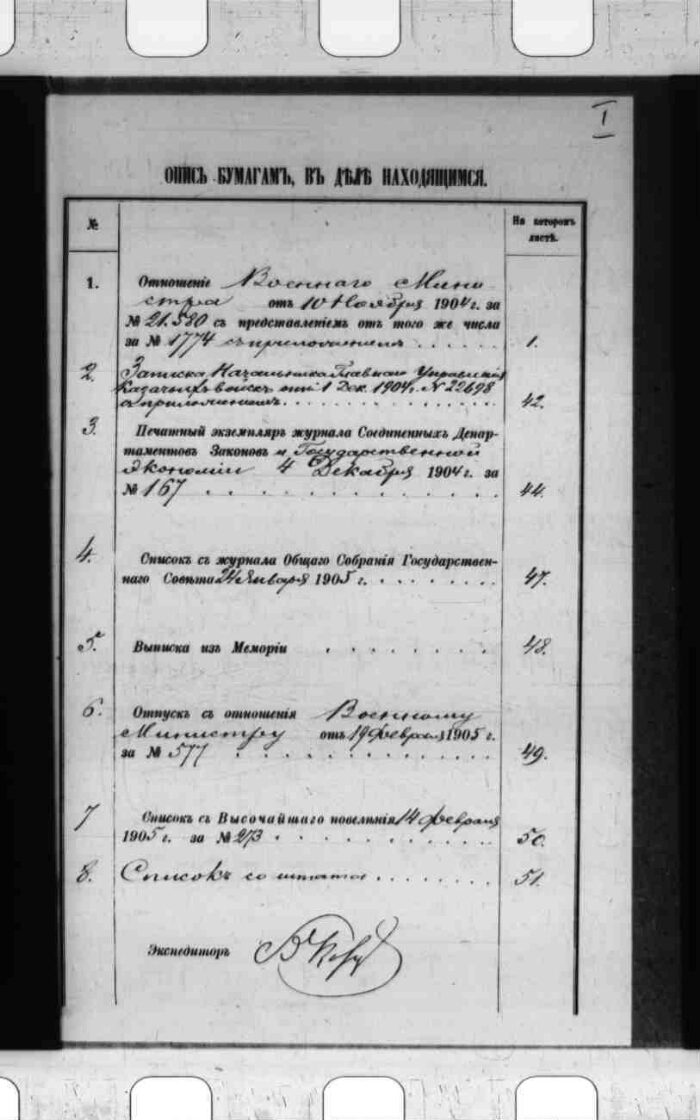 I
ОПИСЬ БУМАГАМЪ, ВЪ ДѢЛѢ НАХОДЯЩИМСЯ.
№
На которомъ
листѣ.
1. Отношеніе Военнаго Мини-
стра отъ 10 Ноября 1904 г. за
№ 21.580 съ представленіемъ отъ того же числа
за № 1774 съ приложеніемъ . . . . . . 1.
2. Записка Начальника Главнаго Управленія
Казачьихъ войскъ отъ 1 Дек. 1904 г. № 22698
съ приложеніемъ . . . . . . . . . . . . 42.
3. Печатный экземпляръ журнала Соединенныхъ Депар-
таментовъ Законовъ и Государственной
Экономіи 4 Декабря 1904 г. за
№ 167 . . . . . . . . . . . . 44.
4. Списокъ съ журнала Общаго Собранія Государствен-
наго Совѣта 24 Января 1905 г. . . . . . . . . 47.
5. Выписка изъ Меморіи . . . . . . . 48.
6. Отпускъ съ отношенія Военному
Министру отъ 19 Февраля 1905 г.
за № 577 . . . . . . . . . . 49.
7 Списокъ съ Высочайшаго повелѣнія 14 Февраля
1905 г. за № 273 . . . . . . . . . . 50.
8. Списокъ со штата . . . . . . . 51.
Экспедиторъ